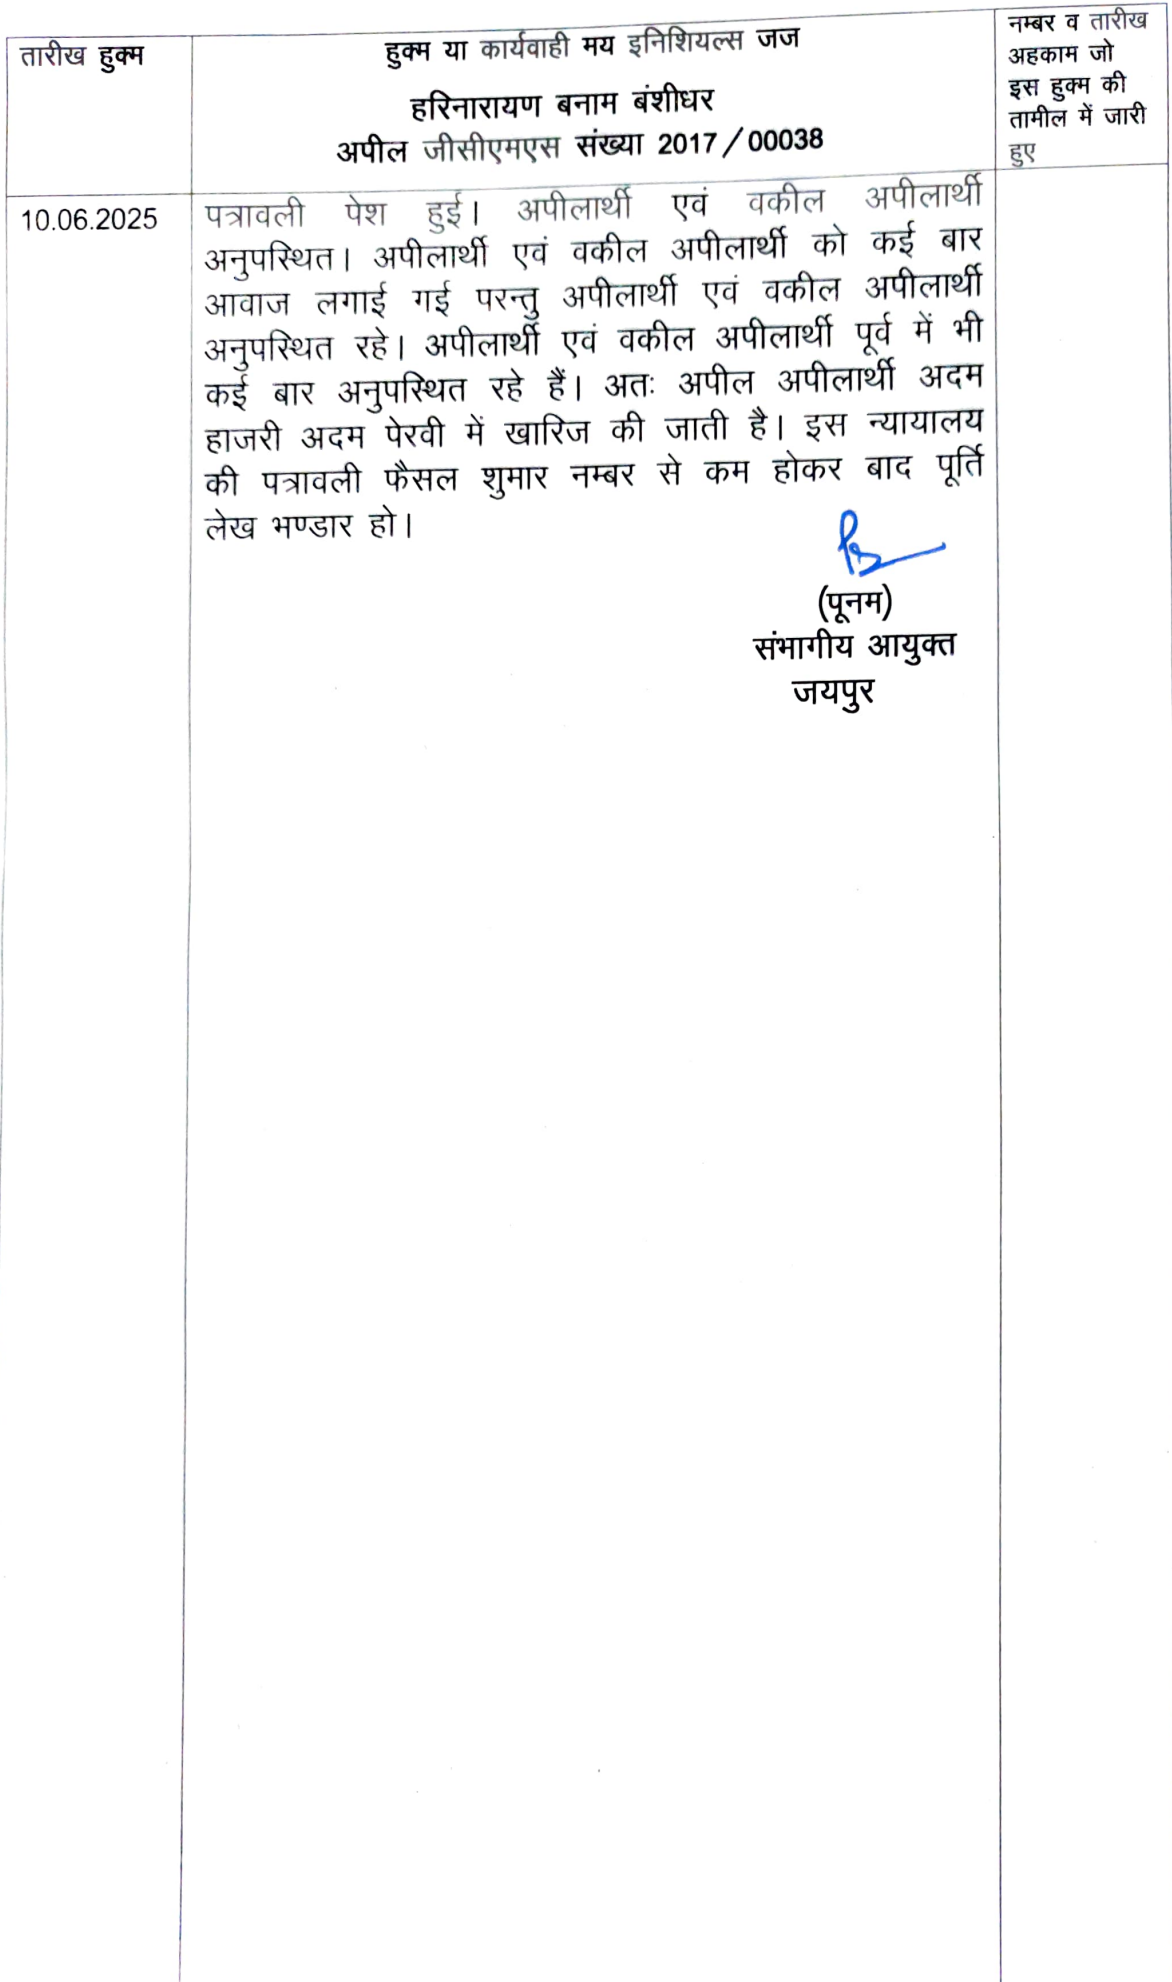 तारीख हुक्म
हुक्म या कार्यवाही मय इनिशियल्स जज
हरिनारायण बनाम बंशीधर
अपील जीसीएमएस संख्या 2017/00038
नम्बर व तारीख
अहकाम जो
इस हुक्म की
तामील में जारी
हुए
10.06.2025
पत्रावली पेश हुई। अपीलार्थी एवं वकील अपीलार्थी
अनुपस्थित। अपीलार्थी एवं वकील अपीलार्थी को कई बार
आवाज लगाई गई परन्तु अपीलार्थी एवं वकील अपीलार्थी
अनुपस्थित रहे। अपीलार्थी एवं वकील अपीलार्थी पूर्व में भी
कई बार अनुपस्थित रहे हैं। अतः अपील अपीलार्थी अदम
हाजरी अदम पेरवी में खारिज की जाती है। इस न्यायालय
की पत्रावली फैसल शुमार नम्बर से कम होकर बाद पूर्ति
लेख भण्डार हो।
(पूनम)
संभागीय आयुक्त
जयपुर